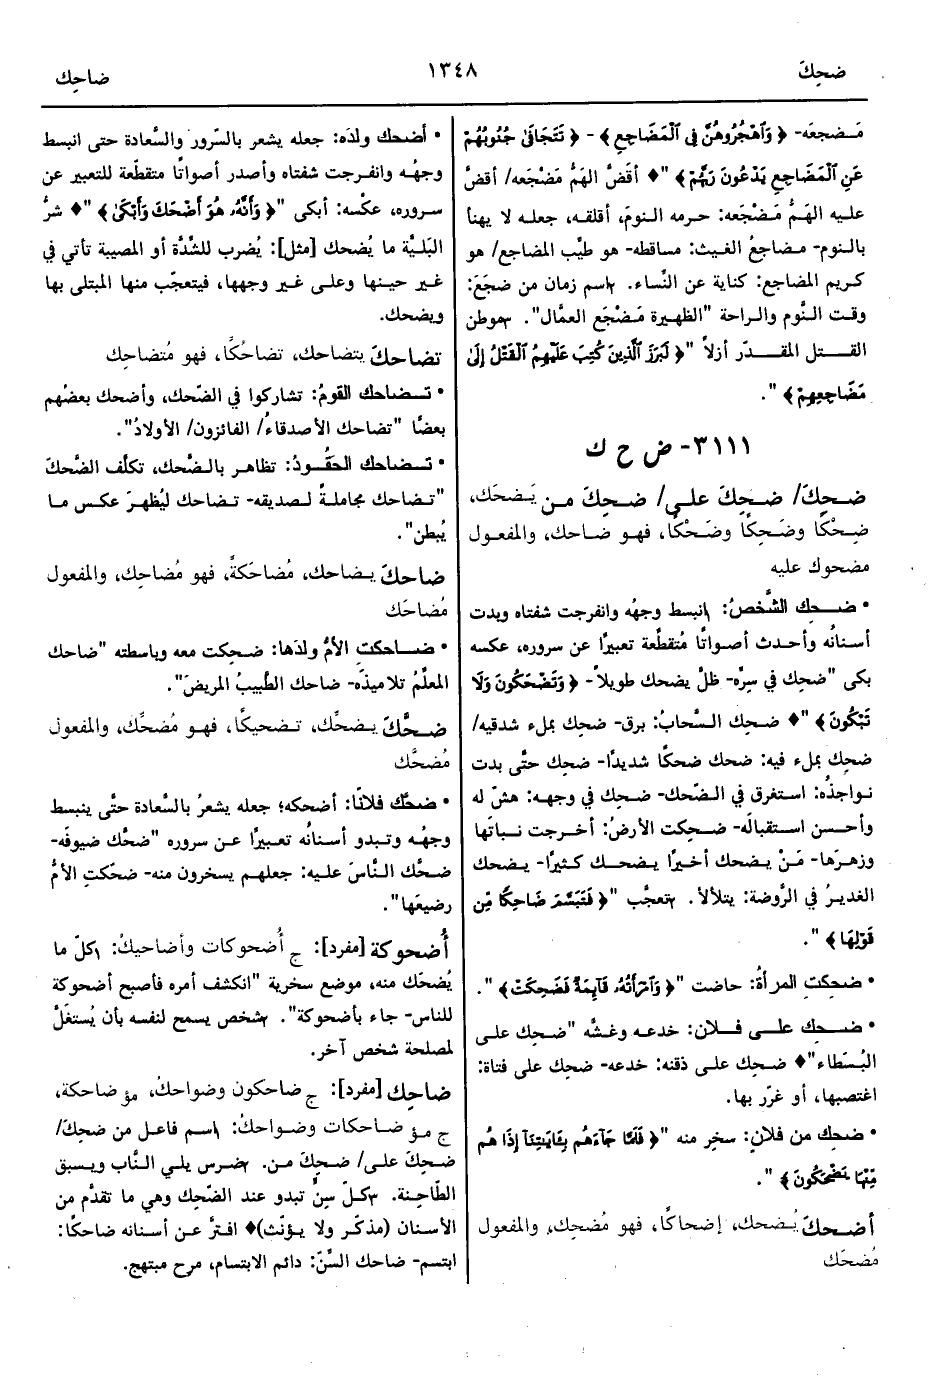 ضحِكَ
١٣٤٨
ضاحِك
مَضجعَه- ﴿ وَاهْجُرُوهُنَّ فِي الْمَضَاجِعِ ﴾- ﴿ تَتَجَافَى جُنُوبُهُمْ
عَنِ الْمَضَاجِعِ يَدْعُونَ رَبَّهُمْ ﴾" ♦ أقضَّ الهمُّ مَضْجَعه/ أقضَّ
عليه الهمُّ مَضْجَعَه: حرمه النومَ، أقلقه، جعله لا يهنأ
بالنوم- مضاجعُ الغيث: مساقطه- هو طيِّب المضاجع/ هو
كريم المضاجع: كناية عن النِّساء. ٢اسم زمان من ضجَعَ:
وقت النَّوم والراحة "الظهيرة مَضْجَع العمَّال". ٣موطن
القتل المقدّر أزلاً "﴿ لَبَرَزَ الَّذِينَ كُتِبَ عَلَيْهِمُ الْقَتْلُ إِلَى
مَضَاجِعِهِمْ ﴾".
٣١١١- ض ح ك
ضحِكَ/ ضحِكَ على/ ضحِكَ من يَضحَك،
ضِحْكًا وضَحِكًا وضَحْكًا، فهو ضاحك، والمفعول
مضحوك عليه
• ضحِك الشَّخصُ: ١انبسط وجهُه وانفرجت شفتاه وبدت
أسنانُه وأحدث أصواتًا مُتقطِّعة تعبيرًا عن سروره، عكسه
بكى "ضحِك في سِرِّه- ظلَّ يضحك طويلاً- ﴿ وَتَضْحَكُونَ وَلَا
تَبْكُونَ ﴾" ♦ ضحِك السَّحابُ: برق- ضحِك بملء شدقيه/
ضحِك بملء فيه: ضحك ضحكًا شديدًا- ضحِك حتَّى بدت
نواجذُه: استغرق في الضّحك- ضحِك في وجهه: هشّ له
وأحسن استقبالَه- ضحِكت الأرضُ: أخرجت نباتَها
وزهرَها- مَنْ يضحك أخيرًا يضحك كثيرًا- يضحك
الغديرُ في الرَّوضة: يتلألأ. ٢تعجَّب "﴿ فَتَبَسَّمَ ضَاحِكًا مِنْ
قَوْلِهَا ﴾".
• ضحِكتِ المرأةُ: حاضت "﴿ وَامْرَأَتُهُ قَائِمَةٌ فَضَحِكَتْ ﴾".
• ضحِك على فلان: خدعه وغشَّه "ضحِك على
البُسَطاء" ♦ ضحِك على ذقنه: خدعه- ضحِك على فتاة:
اغتصبها، أو غرّر بها.
• ضحِك من فلانٍ: سخِر منه "﴿ فَلَمَّا جَاءَهُمْ بِآيَاتِنَا إِذَا هُمْ
مِنْهَا يَضْحَكُونَ ﴾".
أضحكَ يُضحك، إضحاكًا، فهو مُضحِك، والمفعول
مُضحَك
• أضحك ولدَه: جعله يشعر بالسّرور والسَّعادة حتى انبسط
وجهُه وانفرجت شفتاه وأصدر أصواتًا متقطِّعة للتعبير عن
سروره، عكسُه: أبكى "﴿ وَأَنَّهُ هُوَ أَضْحَكَ وَأَبْكَى ﴾" ♦ شرُّ
البَليَّة ما يُضحك [مثل]: يُضرب للشِّدَّة أو المصيبة تأتي في
غير حينها وعلى غير وجهها، فيتعجّب منها المبتلى بها
ويضحك.
تضاحكَ يتضاحك، تضاحُكًا، فهو مُتضاحِك
• تضاحك القومُ: تشاركوا في الضّحك، وأضحك بعضُهم
بعضًا "تضاحك الأصدقاءُ/ الفائزون/ الأولادُ".
• تضاحك الحقُودُ: تظاهر بالضّحك، تكلَّف الضَّحكَ
"تضاحك مجاملةً لصديقه- تضاحك ليُظهرَ عكس ما
يُبطن".
ضاحكَ يضاحك، مُضاحَكةً، فهو مُضاحِك، والمفعول
مُضاحَك
• ضاحكتِ الأمُّ ولدَها: ضحِكت معه وباسطته "ضاحك
المعلِّمُ تلاميذَه- ضاحك الطَّبيبُ المريضَ".
ضحَّكَ يضحِّك، تضحيكًا، فهو مُضحِّك، والمفعول
مُضحَّك
• ضحَّك فلانًا: أضحكه؛ جعله يشعرُ بالسَّعادة حتَّى ينبسط
وجهُه وتبدو أسنانُه تعبيرًا عن سروره "ضحَّك ضيوفَه-
ضحَّك النَّاسَ عليه: جعلهم يسخرون منه- ضحّكتِ الأمُّ
رضيعَها".
أُضحوكة [مفرد]: ج أُضحوكات وأضاحيكُ: ١كلّ ما
يُضحَك منه، موضع سخرية "انكشف أمره فأصبح أضحوكة
للناس- جاء بأضحوكة". ٢شخص يسمح لنفسه بأن يُستغَلَّ
لمصلحة شخص آخر.
ضاحِك [مفرد]: ج ضاحكون وضواحكُ، مؤ ضاحكة،
ج مؤ ضاحكات وضواحكُ: ١اسم فاعل من ضحِكَ/
ضحِكَ على/ ضحِكَ من. ٢ضرس يلي النَّاب ويسبق
الطَّاحِنة. ٣كلّ سِنٍّ تبدو عند الضّحِك وهي ما تقدَّم من
الأسنان (مذكّر ولا يؤنّث) ♦ افترَّ عن أسنانه ضاحكًا:
ابتسم- ضاحك السِّنّ: دائم الابتسام، مرح مبتهج.